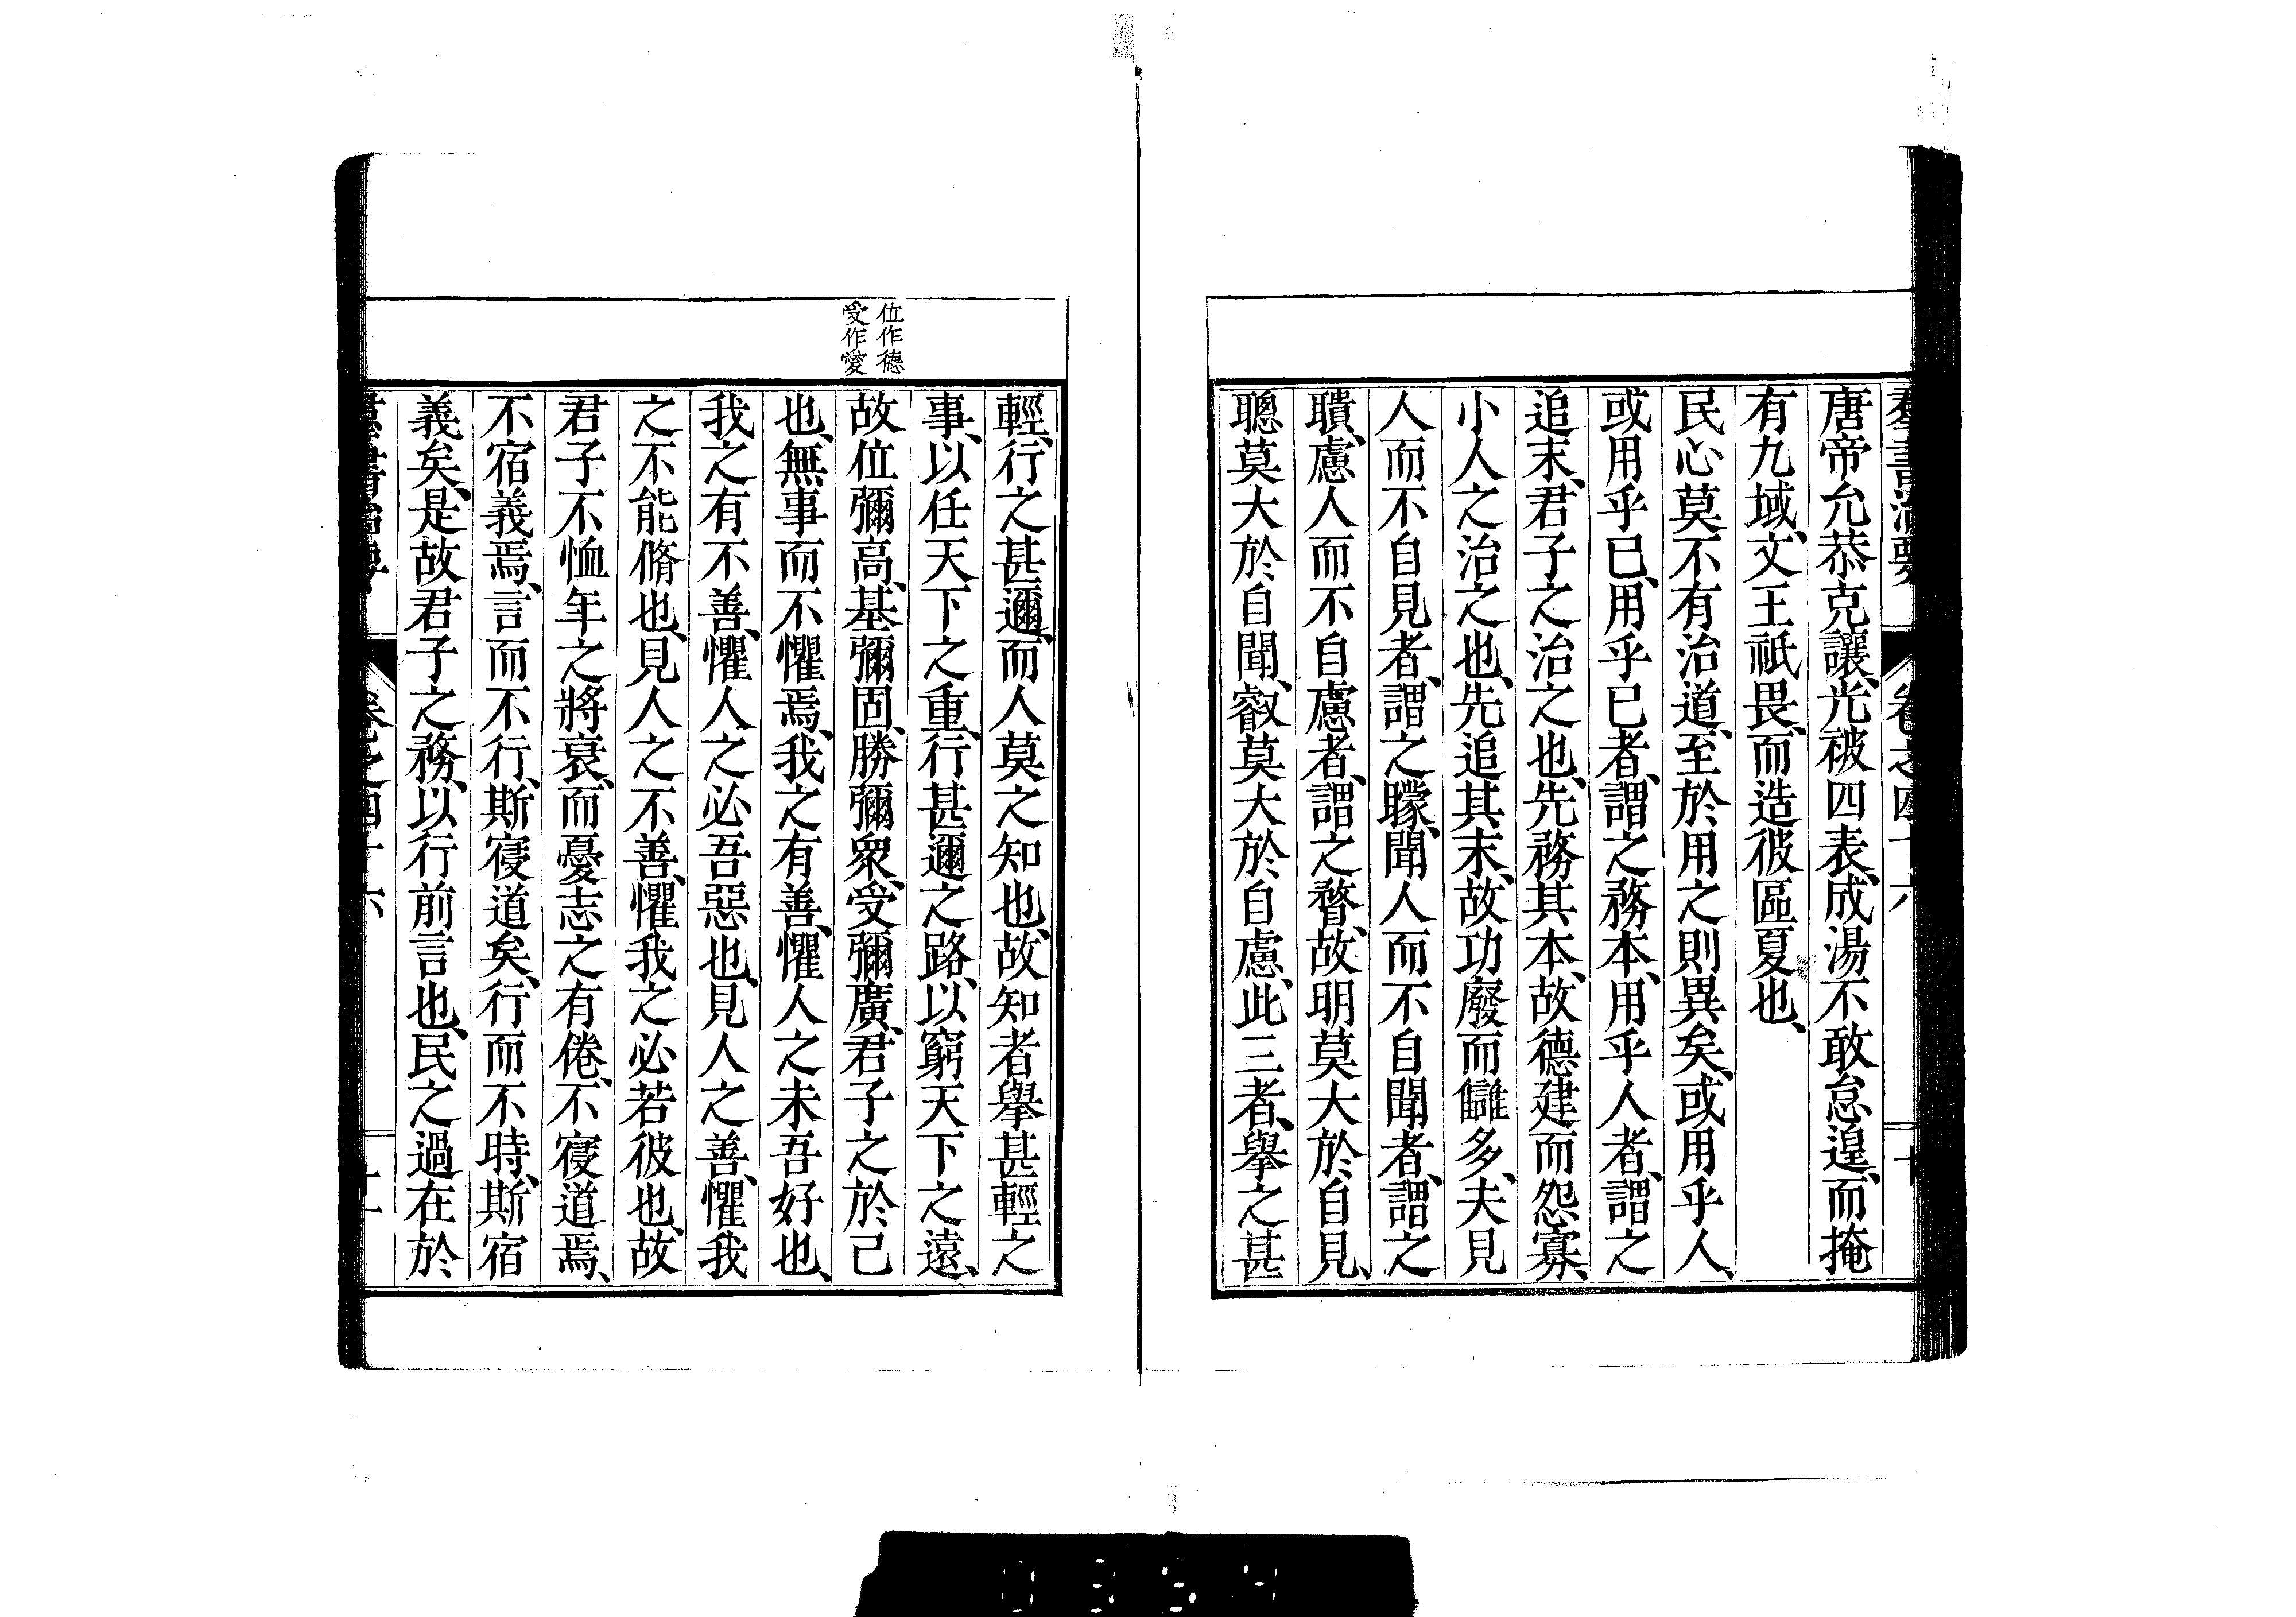 群書治要 卷之四十六 十
唐帝允恭克讓、光被四表、成湯不敢怠遑、而掩
有九域、文王祇畏、而造彼區夏也、
民心莫不有治道、至於用之則異矣、或用乎人、
或用乎已、用乎已者、謂之務本、用乎人者、謂之
追末、君子之治之也、先務其本、故德建而怨寡、
小人之治之也、先追其末、故功廢而讎多、夫見
人而不自見者、謂之矇、聞人而不自聞者、謂之
聵、慮人而不自慮者、謂之瞀、故明莫大於自見、
聰莫大於自聞、叡莫大於自慮、此三者、舉之甚
輕、行之甚邇、而人莫之知也、故知者舉甚輕之
事、以任天下之重、行甚邇之路、以窮天下之遠、
位作德
受作愛
故位彌高、基彌固、勝彌衆、受彌廣、君子之於己
也、無事而不懼焉、我之有善、懼人之未吾好也、
我之有不善、懼人之必吾惡也、見人之善、懼我
之不能脩也、見人之不善、懼我之必若彼也、故
君子不恤年之將衰、而憂志之有倦、不寑道焉、
不宿義焉、言而不行、斯寑道矣、行而不時、斯宿
義矣、是故君子之務、以行前言也、民之過在於
群書治要 卷之四十六